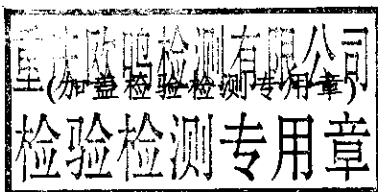 重庆欧鸣检测有限公司
(加盖检验检测专用章)
检验检测专用章